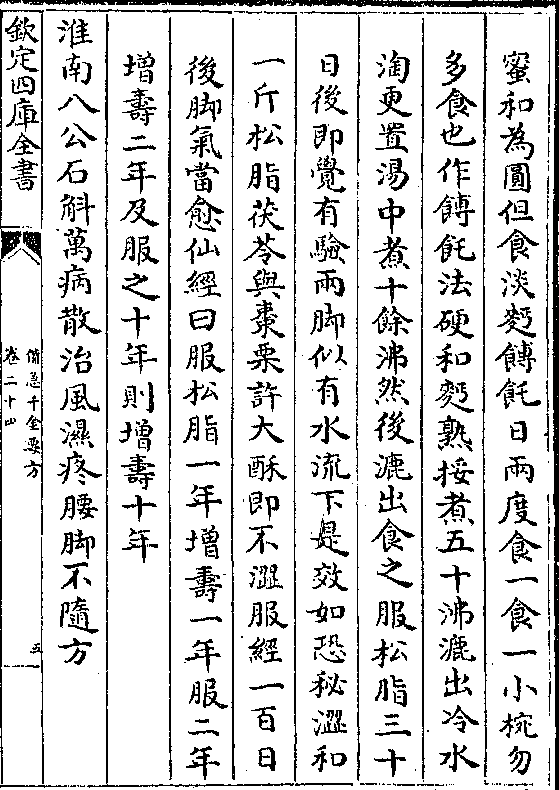 蜜和為圓但食淡麫餺飥日兩度食一食一小椀勿
多食也作餺飥法硬和麫熟挼煮五十沸漉出冷水
淘更置湯中煮十餘沸然後漉出食之服松脂三十
日後即覺有驗兩脚似有水流下是效如恐秘澀和
一斤松脂茯苓與棗栗許大酥即不澀服經一百日
後脚氣當愈仙經曰服松脂一年增壽一年服二年
增壽二年及服之十年則增壽十年
淮南八公石斛萬病散治風濕疼腰脚不隨方
欽定四庫全書
備急千金要方
卷二十四
五